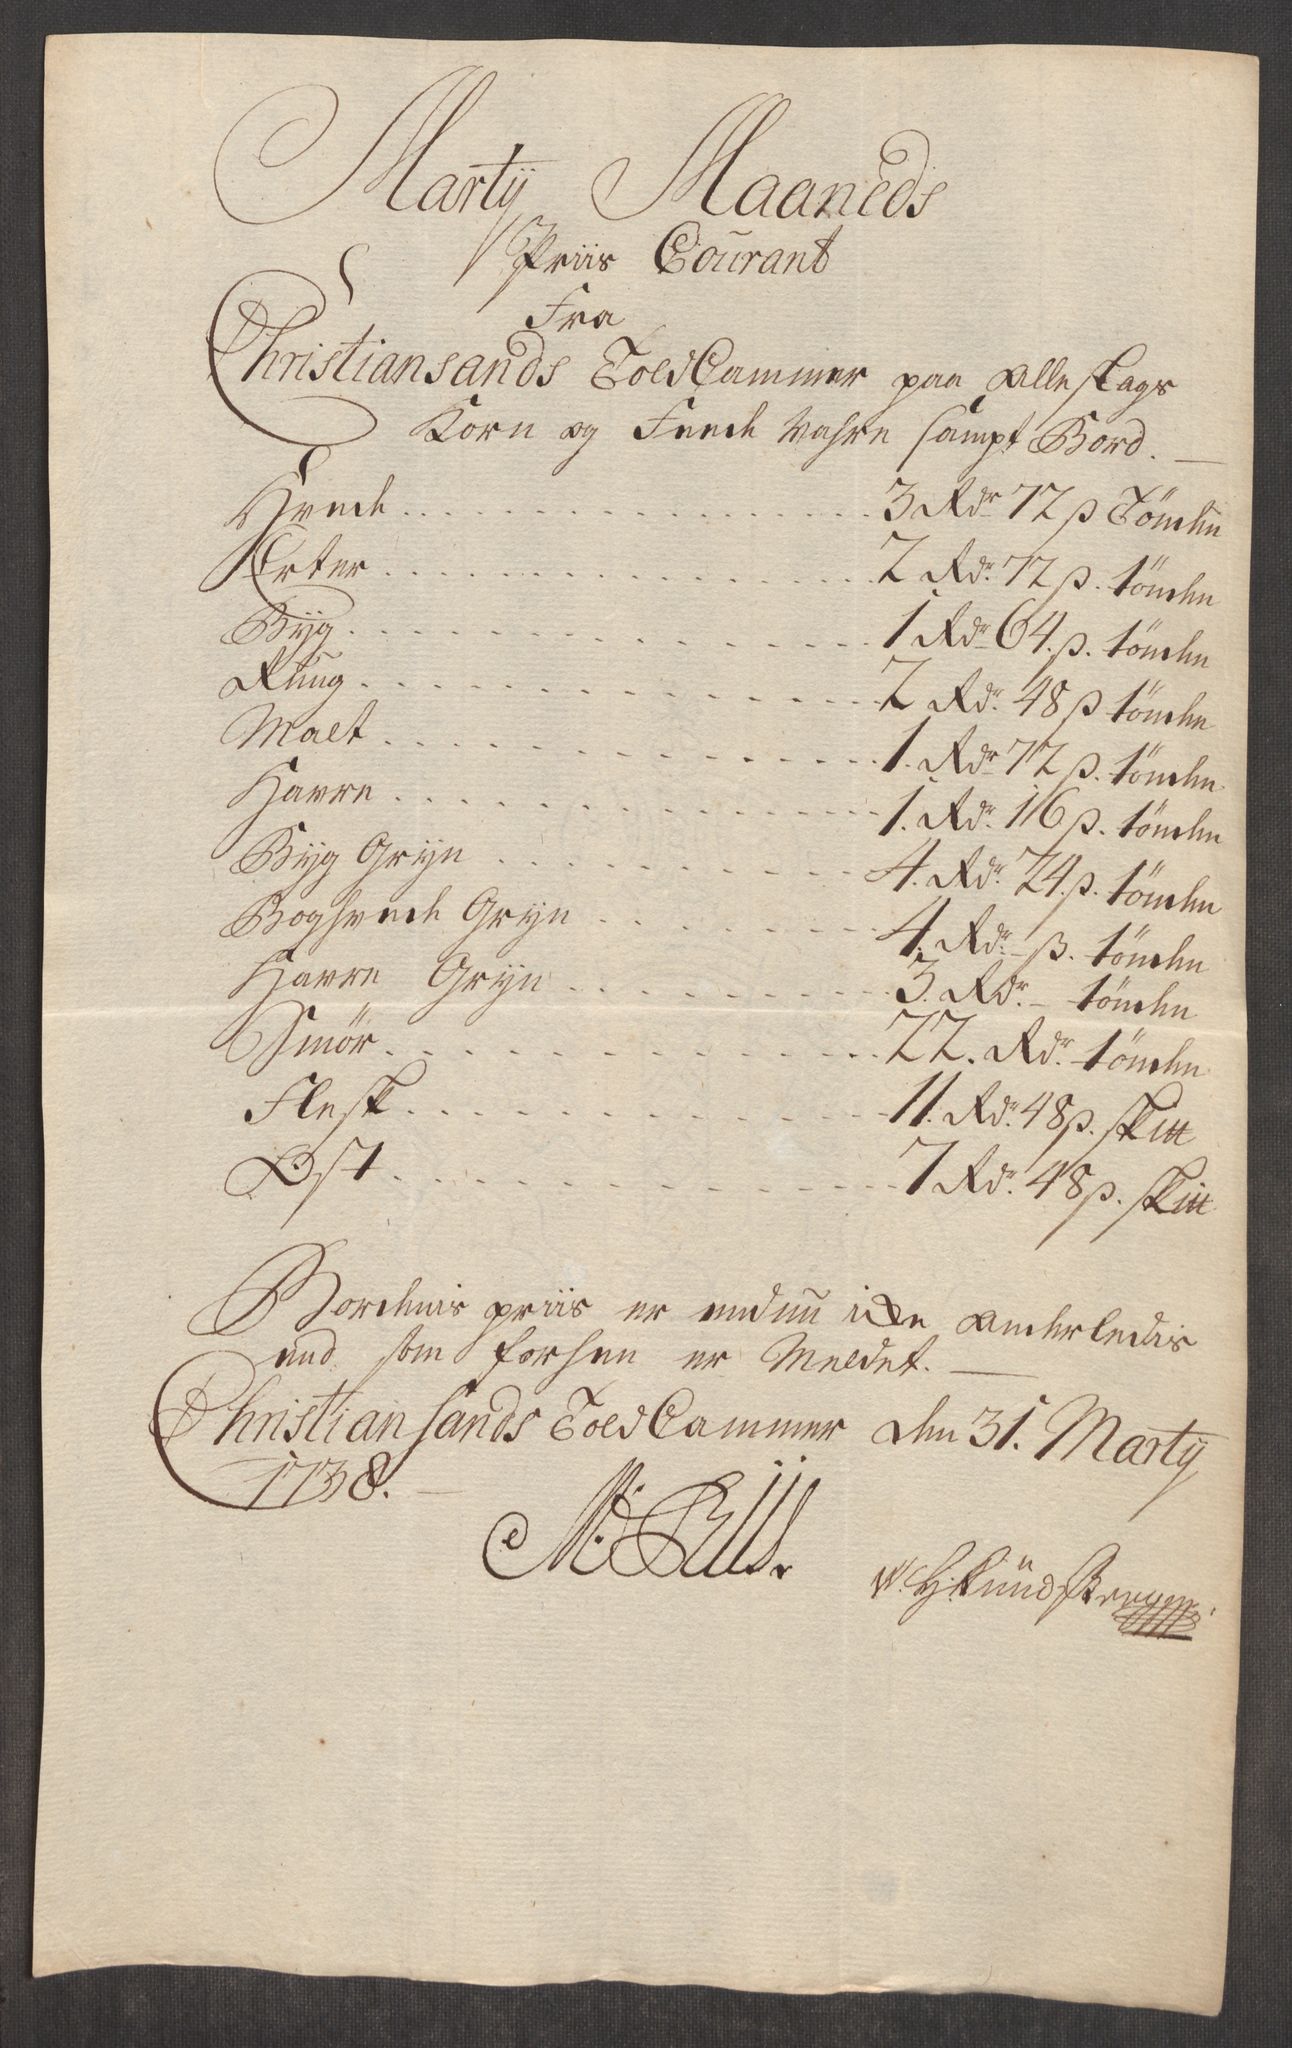 Martij Maaneds
Priis Courant
Fra
Christiansands Told Cammer paa alle slags
Korn og Feede Vahre sampt Bord.
Hvede 3 Rdr 72 ß Tönden
Erter 2 Rdr. 72 ß. tönden
Byg 1 Rdr 64. ß. tönden
Rüug 2 Rdr. 48 ß tönden
Malt 1. Rdr 72 ß. tönden
Havre 1. Rdr. 16 ß. tönden
Byg Gryn 4. Rdr. 24. ß. tönden
Boghvede Gryn 4. Rdr. - ß. tönden
Havre Gryn 3. Rdr. - tönden
Smör 22. Rdr. tönden
Flesk 11. Rdr. 48 ß. sk℔
Ost 7 Rdr. 48 ß. sk℔
Bordenis priis er endnu icke anderledis
end som forhen er Meldet.
Christiansands Told Cammer den 31. Martij
1738.